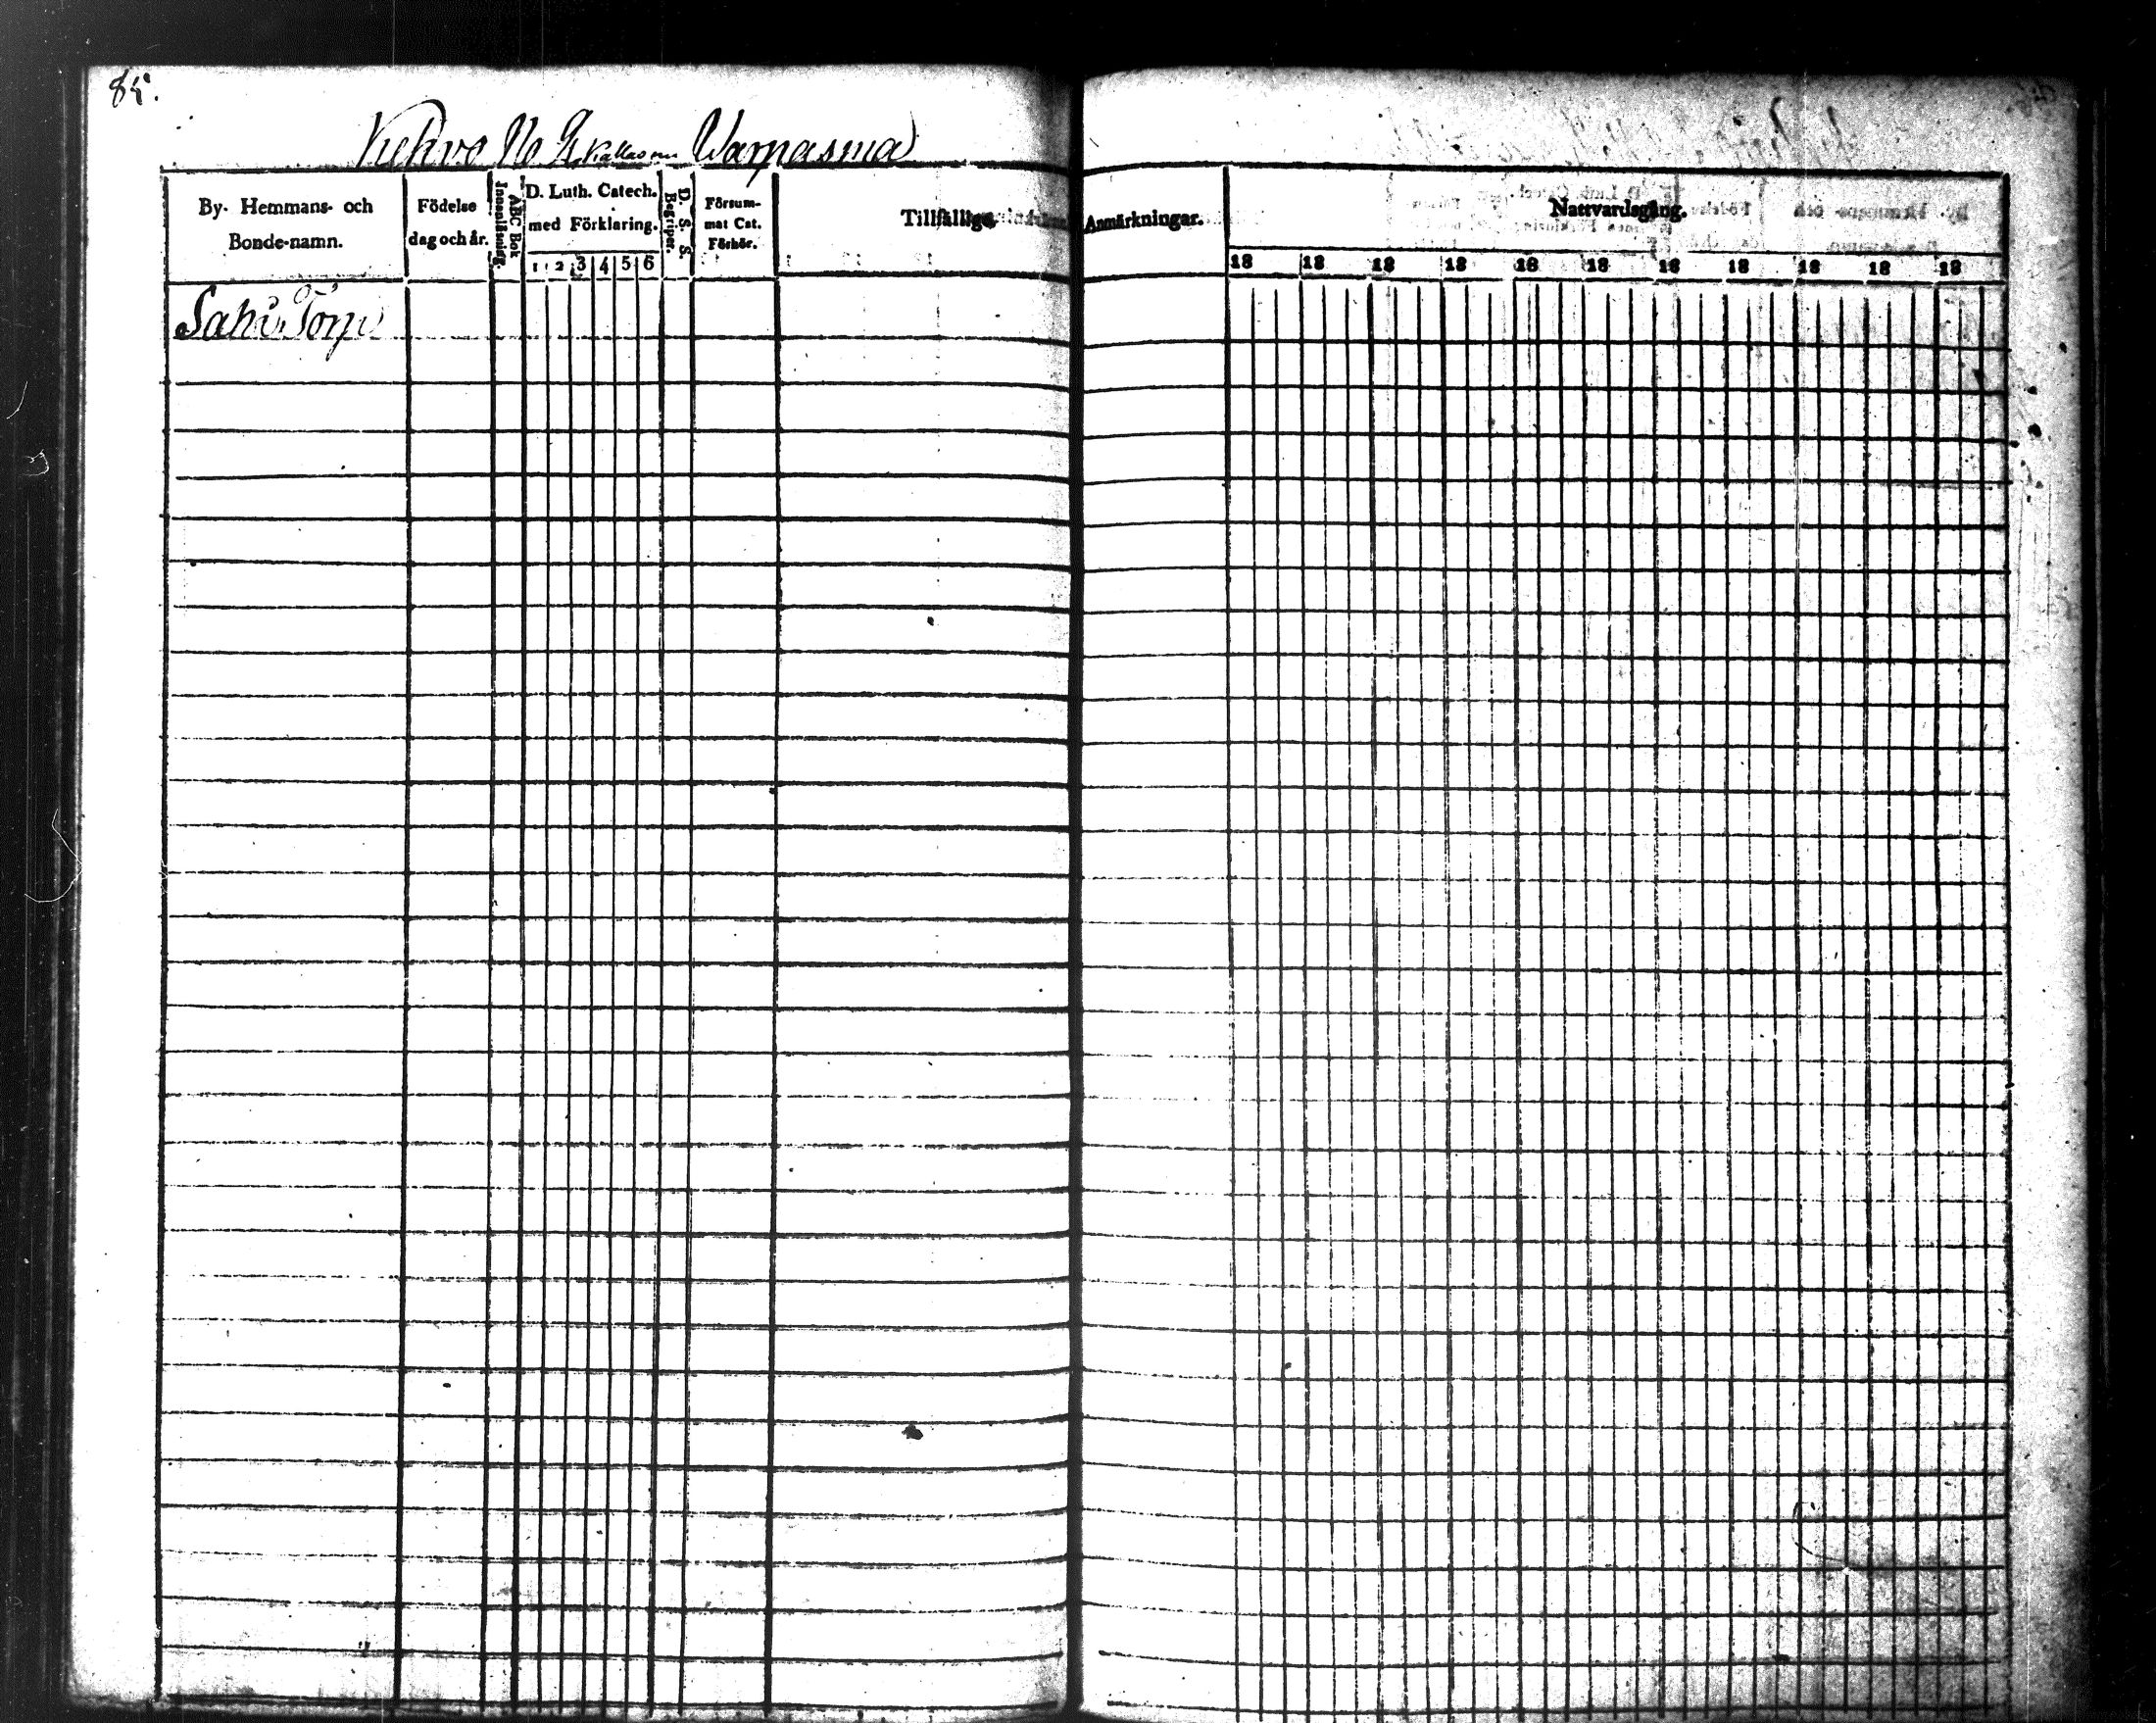 85.
Kehvo No 2 Kallas om Warpasma
By- Hemmans- och
Bonde-namn.
Födelse
dag och år.
ABC Bok
Innanläsning.
D. Luth. Catech.
med Förklaring.
1 2 3 4 5 6
D. S. S.
Begriper.
Försum-
mat Cat.
Förhör.
Tillfällige
Anmärkningar.
Nattvardsgång.
18 18 18 18 18 18 18 18 18 18 18
Torp